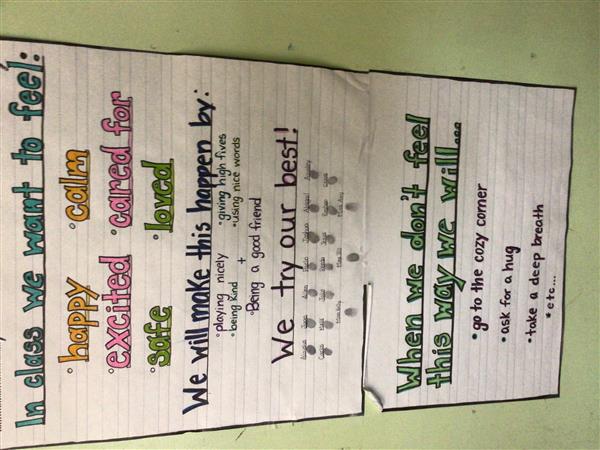 In class we want to feel:
• happy • calm
• excited • cared for
• safe • loved
We will make this happen by:
• playing nicely • giving high fives
• being kind • using nice words
+
• Being a good friend
We try our best!
When we don't feel
this way we will...
• go to the cozy corner
• ask for a hug
• take a deep breath
• etc...